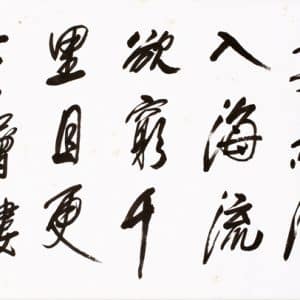 入海流
欲窮千
里目更
層樓